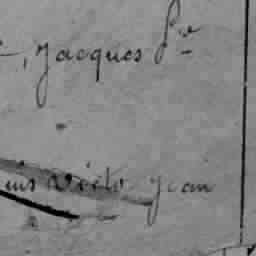 , Jacques P^re
uis Victor Jean